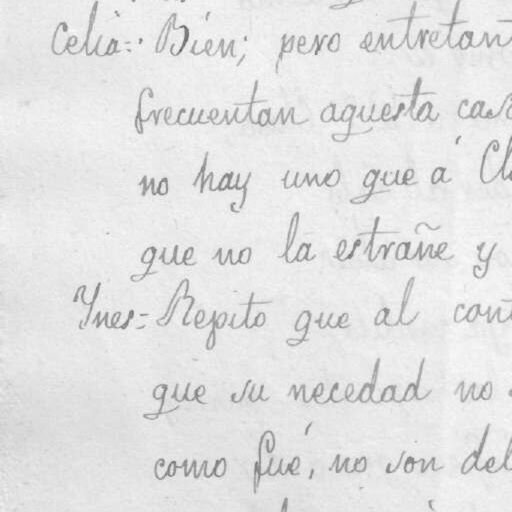 Celia=. Bien; pero entretant
frecuentan aquesta cas
no hay uno que á Cl
que no la estrañe y
Ynes= Repito que al cont
que su necedad no
como fué, no son del